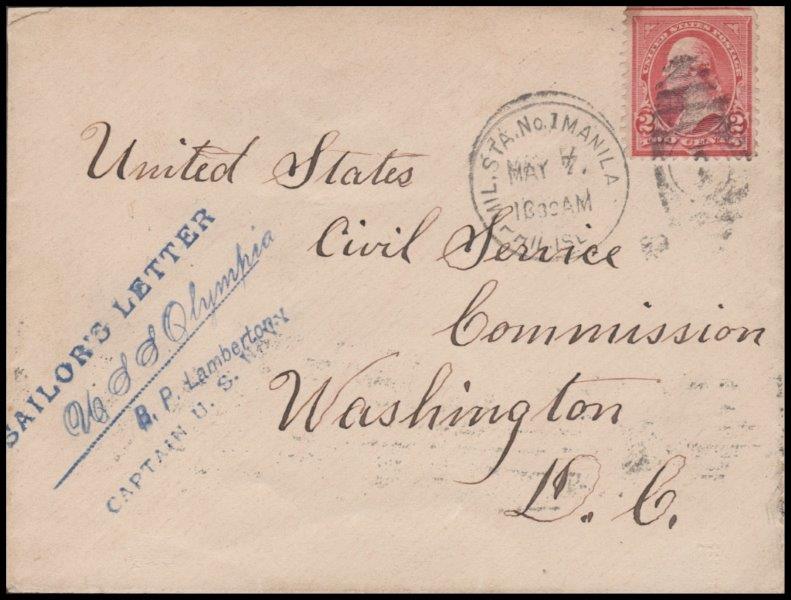 UNITED STATES POSTAGE
2 2
TWO CENTS
MIL. STA. No. 1 MANILA
MAY
1899
PHIL. ISL
United States
Civil Service
Commission
Washington
D. C.
SAILOR'S LETTER
U S S Olympia
B. P. Lamberton
CAPTAIN U. S. NAVY